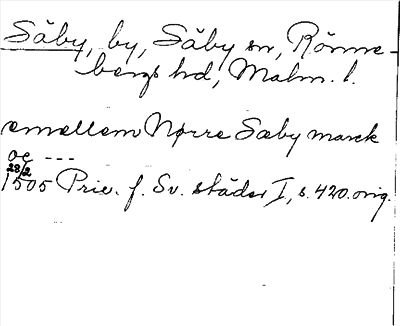 Säby, by, Säby sn, Rönne-
bergs hd, Malm. l.
emellem Nørre Sæby marck
oc ---
28/2
1505 Priv. f. Sv. städer I, s. 420. orig.